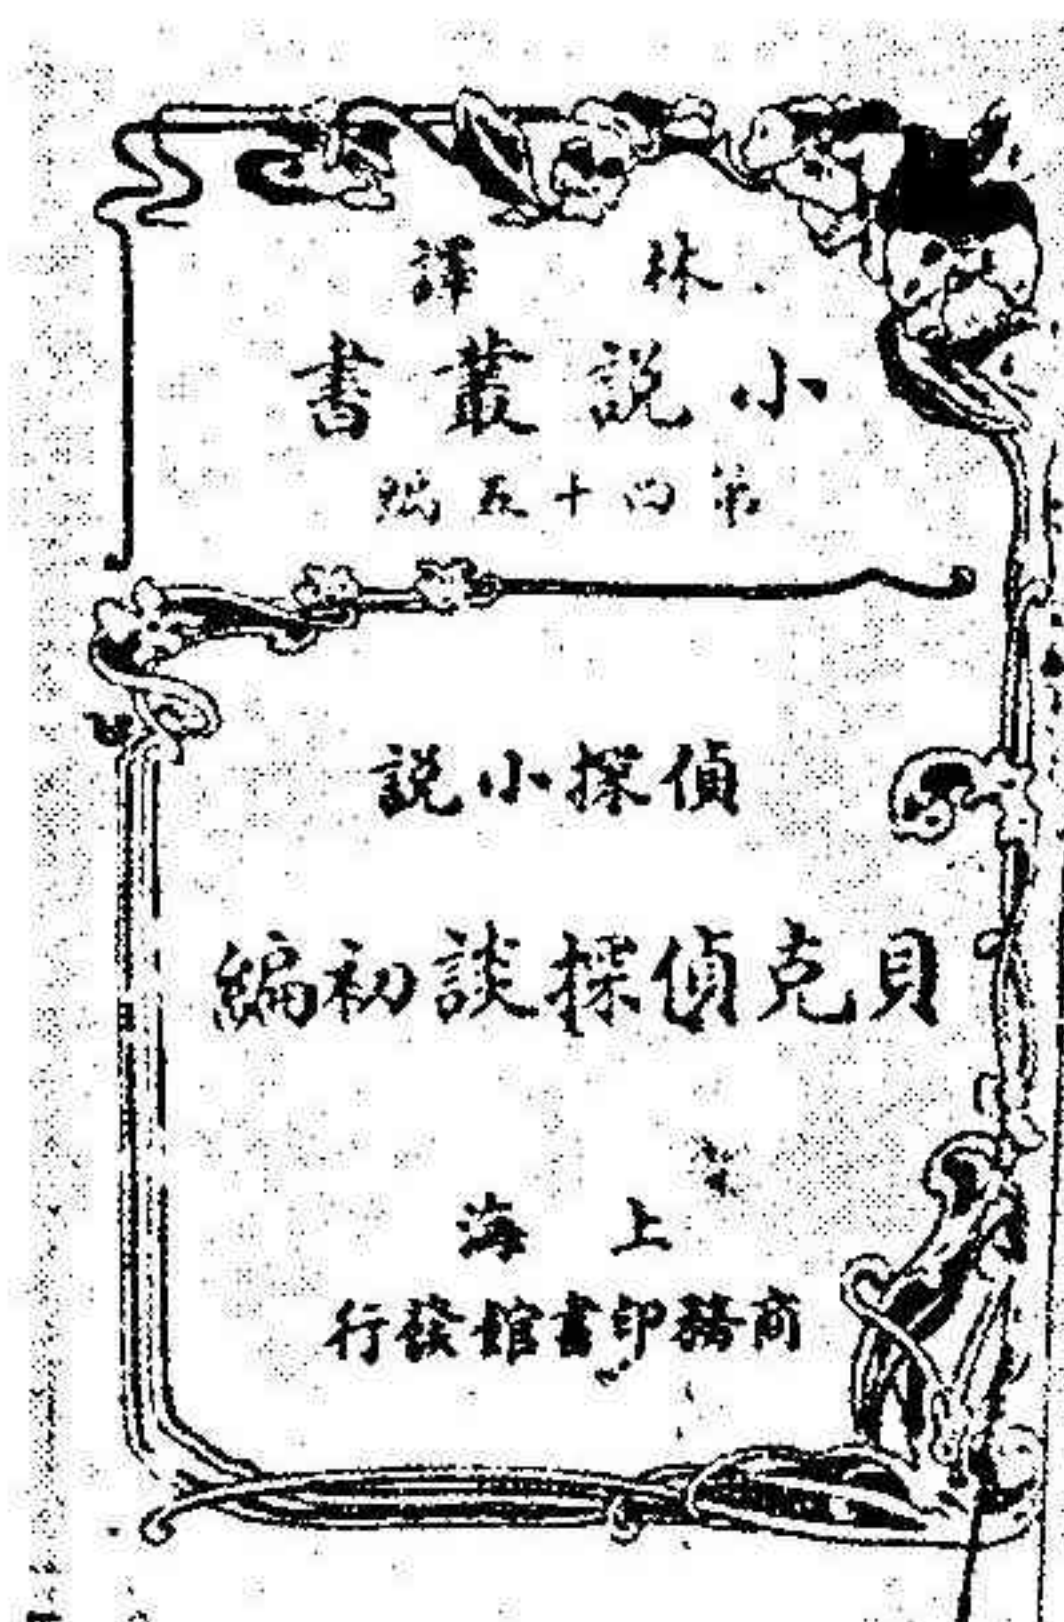 林譯
小說叢書
第四十五編
偵探小說
貝克偵探談初編
上海
商務印書館發行